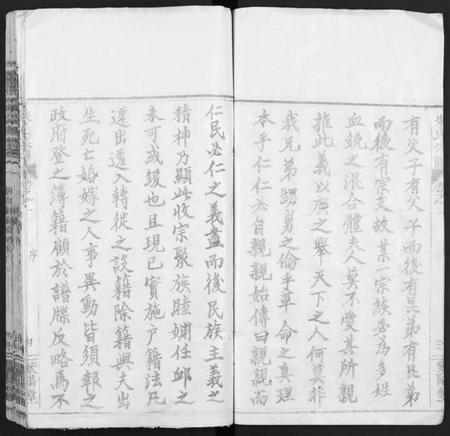 有父子有父子而後有昆弟有昆弟
而後有宗支故某一宗族必為多姓
血統之混合體夫人莫不愛其所親
推此義以族之舉天下之人何莫非
我兄弟甥舅之倫乎革命之真理
本乎仁仁必自親親始傳曰親親而
仁民必仁之義盡而後民族主義之
精神乃顯此收宗聚族睦婣任卹之
未可或緩也且現已實施户籍法凡
遷出遷入轉徙之設籍除籍與夫出
生死亡婚嫁之人事異動皆須報之
政府登之簿籍顧於譜牒反略焉不
序